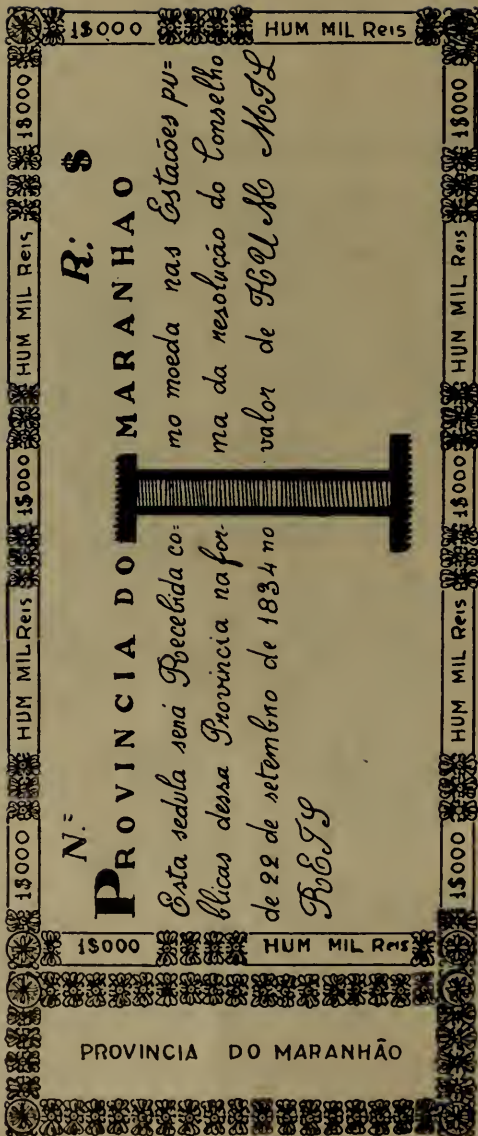 1$000 HUM MIL Reis 1$000 HUM MIL Reis 1$000
1$000 HUM MIL Reis
N.= R: $
PROVINCIA DO MARANHAO
Esta sedula será Recebida co= mo moeda nas Estacões pu=
blicas dessa Provincia na for- ma da resolução do Conselho
de 22 de setembro de 1834 no valor de HUM MIL
REIS
1$000 HUM MIL Reis
1$000 HUM MIL Reis 1$000 HUN MIL Reis 1$000
PROVINCIA DO MARANHÃO